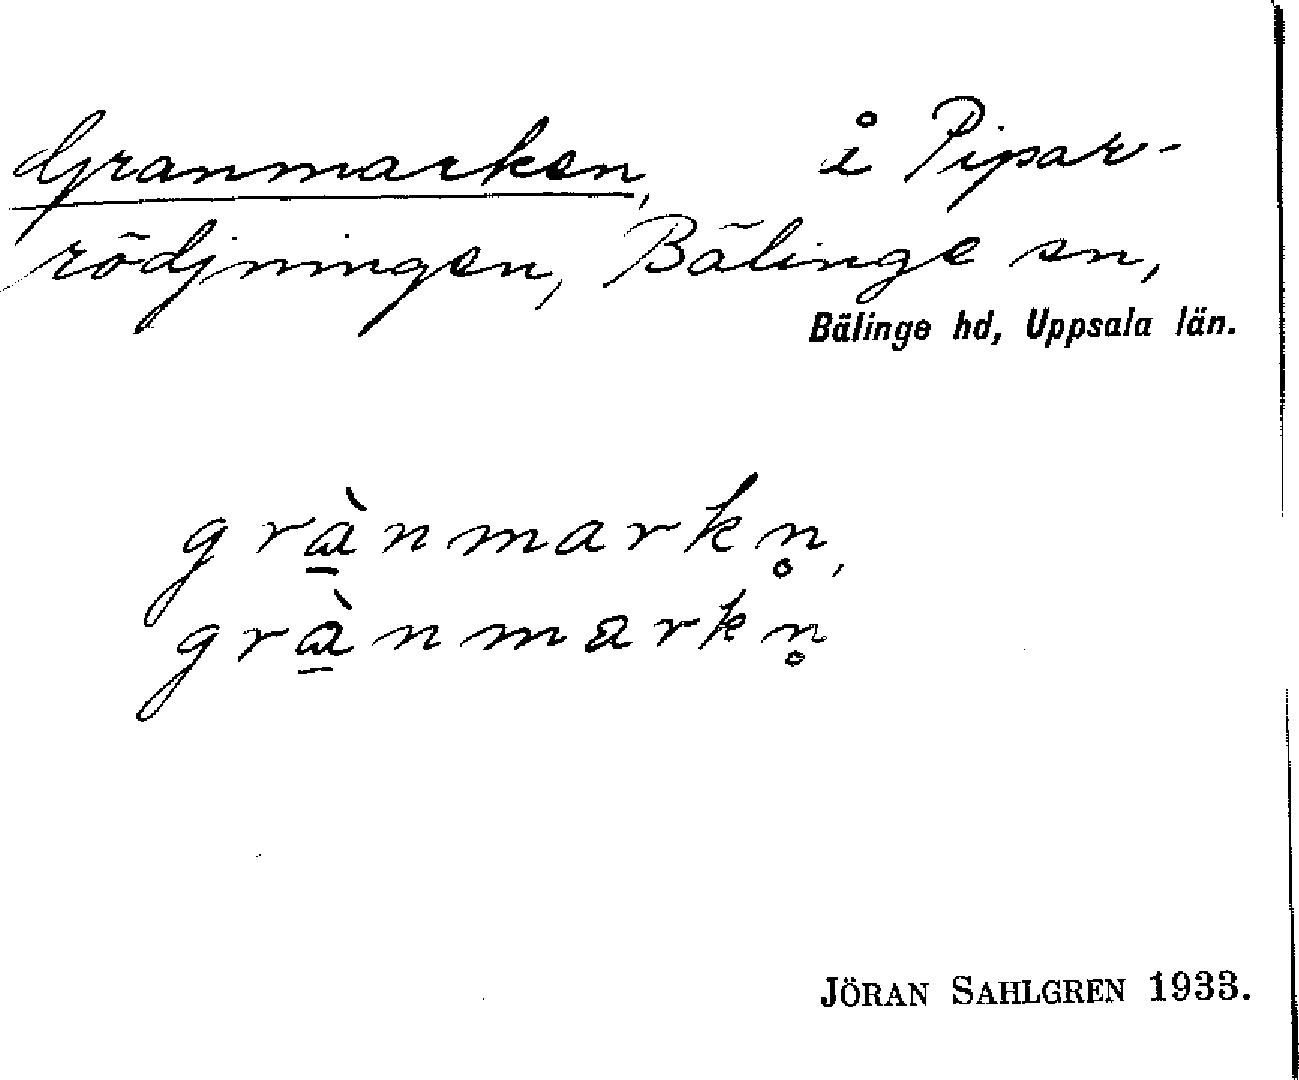 Granmarken, å Pipar-
rödjningen, Bälinge sn,
Bälinge hd, Uppsala län.
grὰ̠nmarkn̥,
grὰ̠nmarkn̥
JÖRAN SAHLGREN 1933.